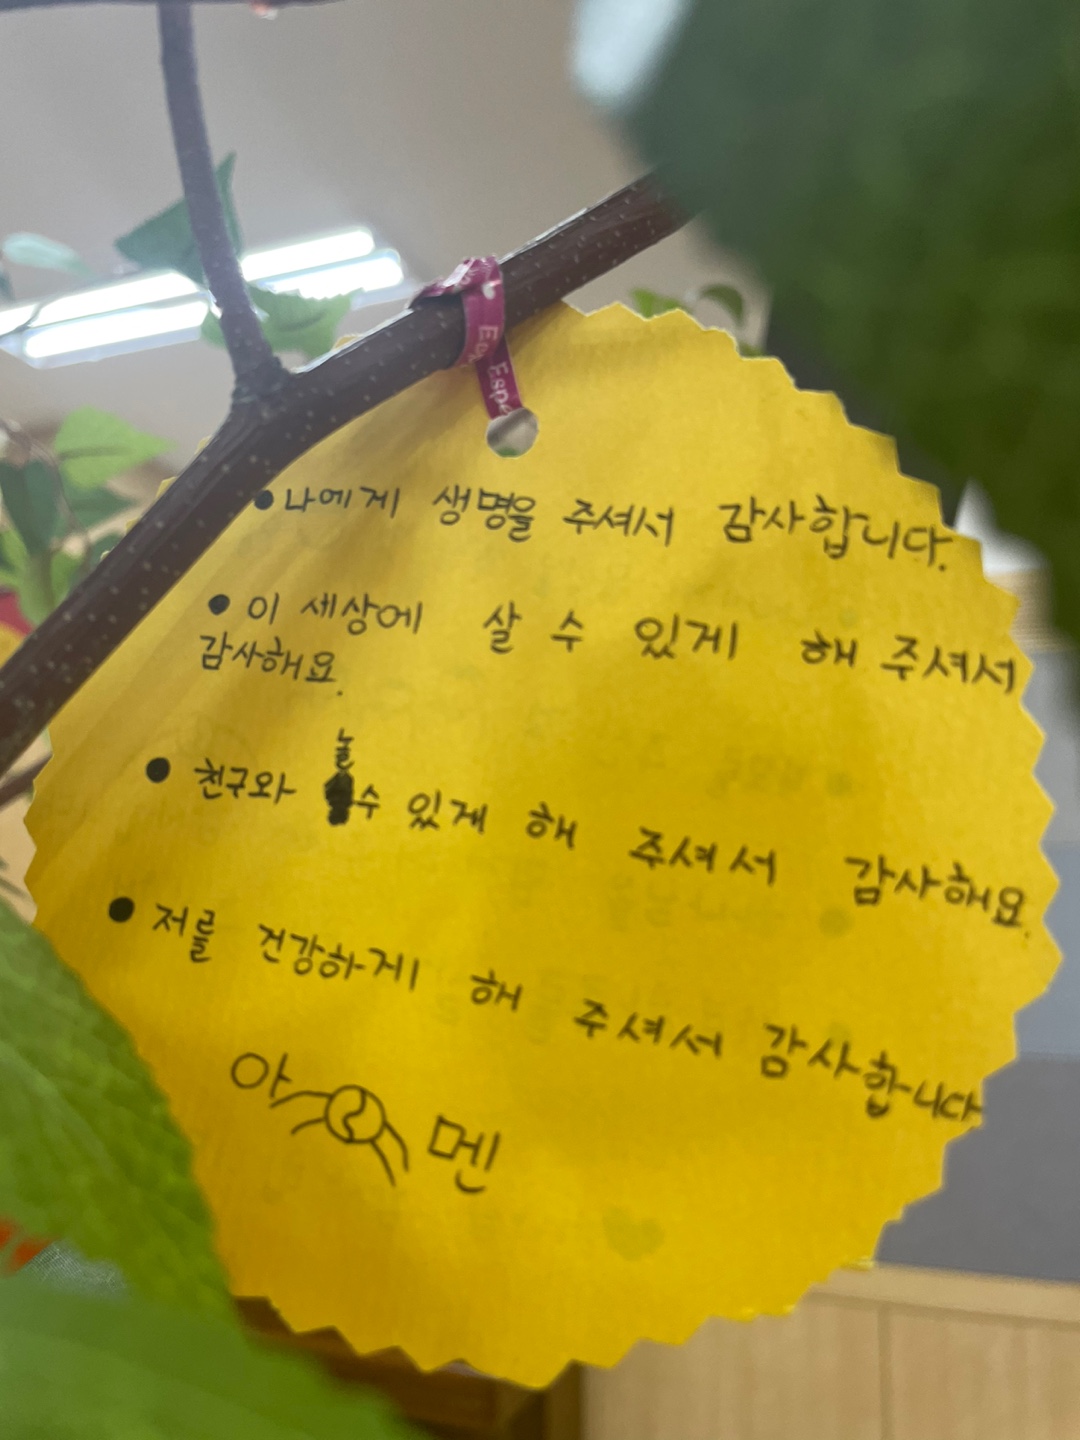 • 나에게 생명을 주셔서 감사합니다.
• 이 세상에 살 수 있게 해 주셔서
감사해요.
• 친구와 놀 수 있게 해 주셔서 감사해요.
• 저를 건강하게 해 주셔서 감사합니다.
아 멘